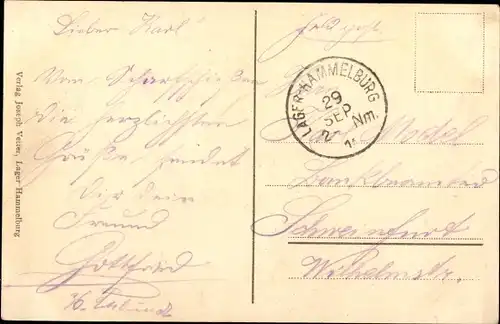 Lieber Karl
Vom Scharfschießen
die herzlichsten
Grüße sendet
Dir dein
Freund
Gottfried
Verlag Joseph Vetter, Lager Hammelburg
Feldpost.
LAGER-HAMMELBURG
29
SEP
Nm.
Bankbeamter
Schweinfurt
Wilhelmstr.